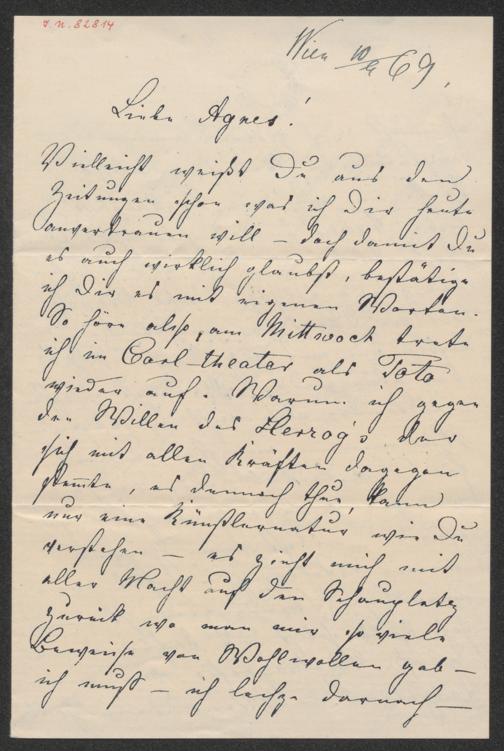 I. N. 82814
Wien 10/4 69,
Liebe Agnes!
Vielleicht weißt Du aus den
Zeitungen schon was ich Dir heute
anvertrauen will – doch damit Du
es auch wirklich glaubst, bestätige
ich Dir es mit eigenen Worten.
So höre also, am Mittwoch trete
ich im Carl-theater als Toto
wieder auf. Warum ich gegen
den Willen des Herzog's der
sich mit allen Kräften dagegen
stemmte, es dennoch thue, kann
nur eine Künstlernatur wie Du
verstehen – es zieht mich mit
aller Macht auf den Schauplatz
zurück wo man mir so viele
Beweise von Wohlwollen gab –
ich muß – ich lechze darnach –